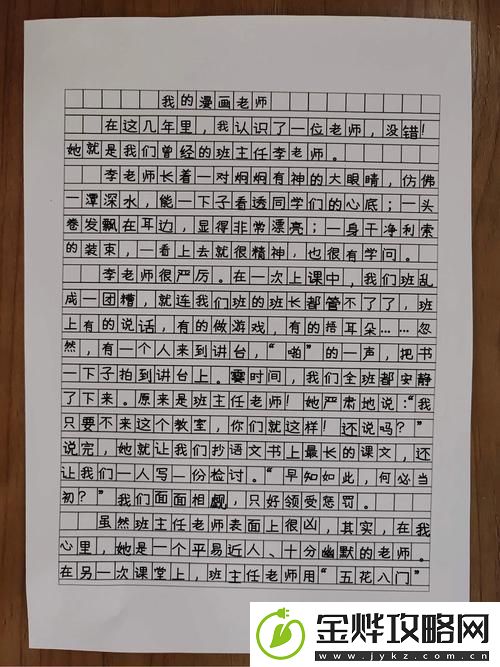 我的漫画老师
在这几年里，我认识了一位老师，没错！
她就是我们曾经的班主任李老师。
李老师长着一对炯炯有神的大眼睛，仿佛
一潭深水，能一下子看透同学们的心底；一头
卷发飘在耳边，显得非常漂亮；一身干净利索
的装束，一看上去就很精神，也很有学问。
李老师很严厉。在一次上课中，我们班乱
成一团糟，就连我们班的班长都管不了了，班
上有的说话，有的做游戏，有的捂耳朵……忽
然，有一个人来到讲台，“啪”的一声，把书
一下子拍到讲台上。霎时间，我们全班都安静
了下来。原来是班主任老师！她严肃地说：“我
只要不来这个教室，你们就这样！还说吗？”
说完，她就让我们抄语文书上最长的课文，还
让我们一人写一份检讨。“早知如此，何必当
初？”我们面面相觑，只好领受惩罚。
虽然班主任老师表面上很凶，其实，在我
心里，她是一个平易近人、十分幽默的老师。
在另一次课堂上，班主任老师用“五花八门”
金烨攻略网
www.jykz.com.cn